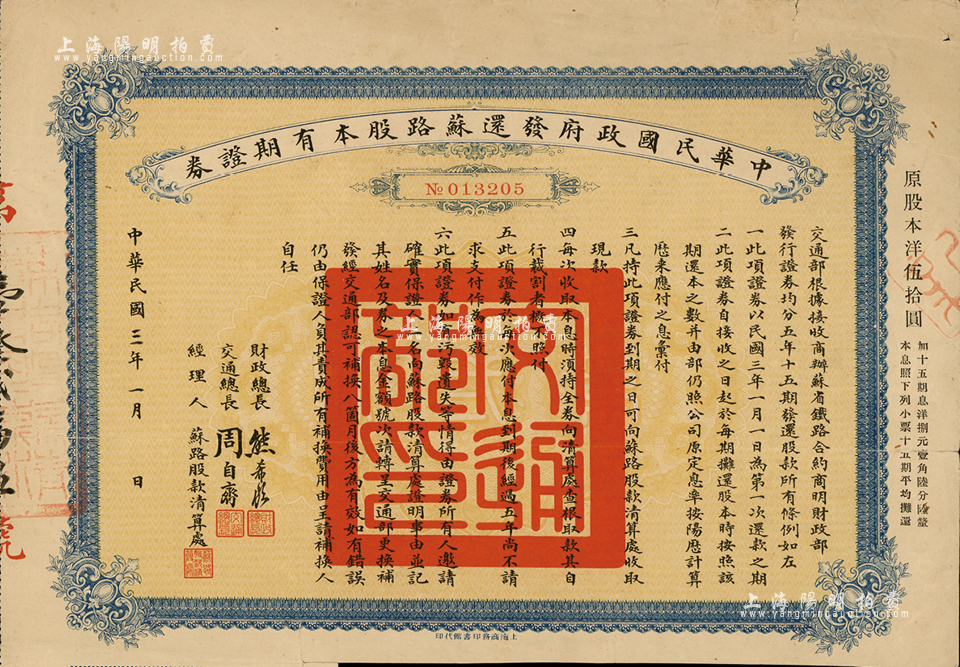 上海陽明拍賣
www.yangmingauction.com
中華民國政府發還蘇路股本有期證券
№013205
原股本洋伍拾圓
加十五期息洋捌元壹角陸分陸釐
本息照下列小票十五期平均攤還
交通部根據接收商辦蘇省鐵路合約商明財政部
發行證券均分五年十五期發還股款所有條例如左
一此項證券以民國三年一月一日為第一次還款之期
二此項證券自接收之日起於每期攤還股本時按照該
期還本之數並由部仍照公司原定息率按陽歷計算
歷來應付之息彙付
三凡持此項證券到期之日可向蘇路股款清算處收取
現款
四每次收取本息時須持全券向清算處查根取款其自
行裁割者概不照付
五此項證券於每次應付本息到期後經過五年尚不請
求支付作為無效
六此項證券如有污毀遺失等情得由證券所有人邀請
確實保證人二名向蘇路股款清算處證明事由並記
其姓名及券之本息金額號次請轉呈交通部更換補
發經交通部認可補換八箇月後方為有效如有錯誤
仍由保證人負其責成所有補換費用由呈請補換人
自任
財政總長 熊希齡
交通總長 周自齊
經理人 蘇路股款清算處
中華民國三年一月 日
交通部印
上海商務印書館代印
上海陽明拍賣
www.yangmingauction.com
上海陽明拍賣
www.yangmingauction.com